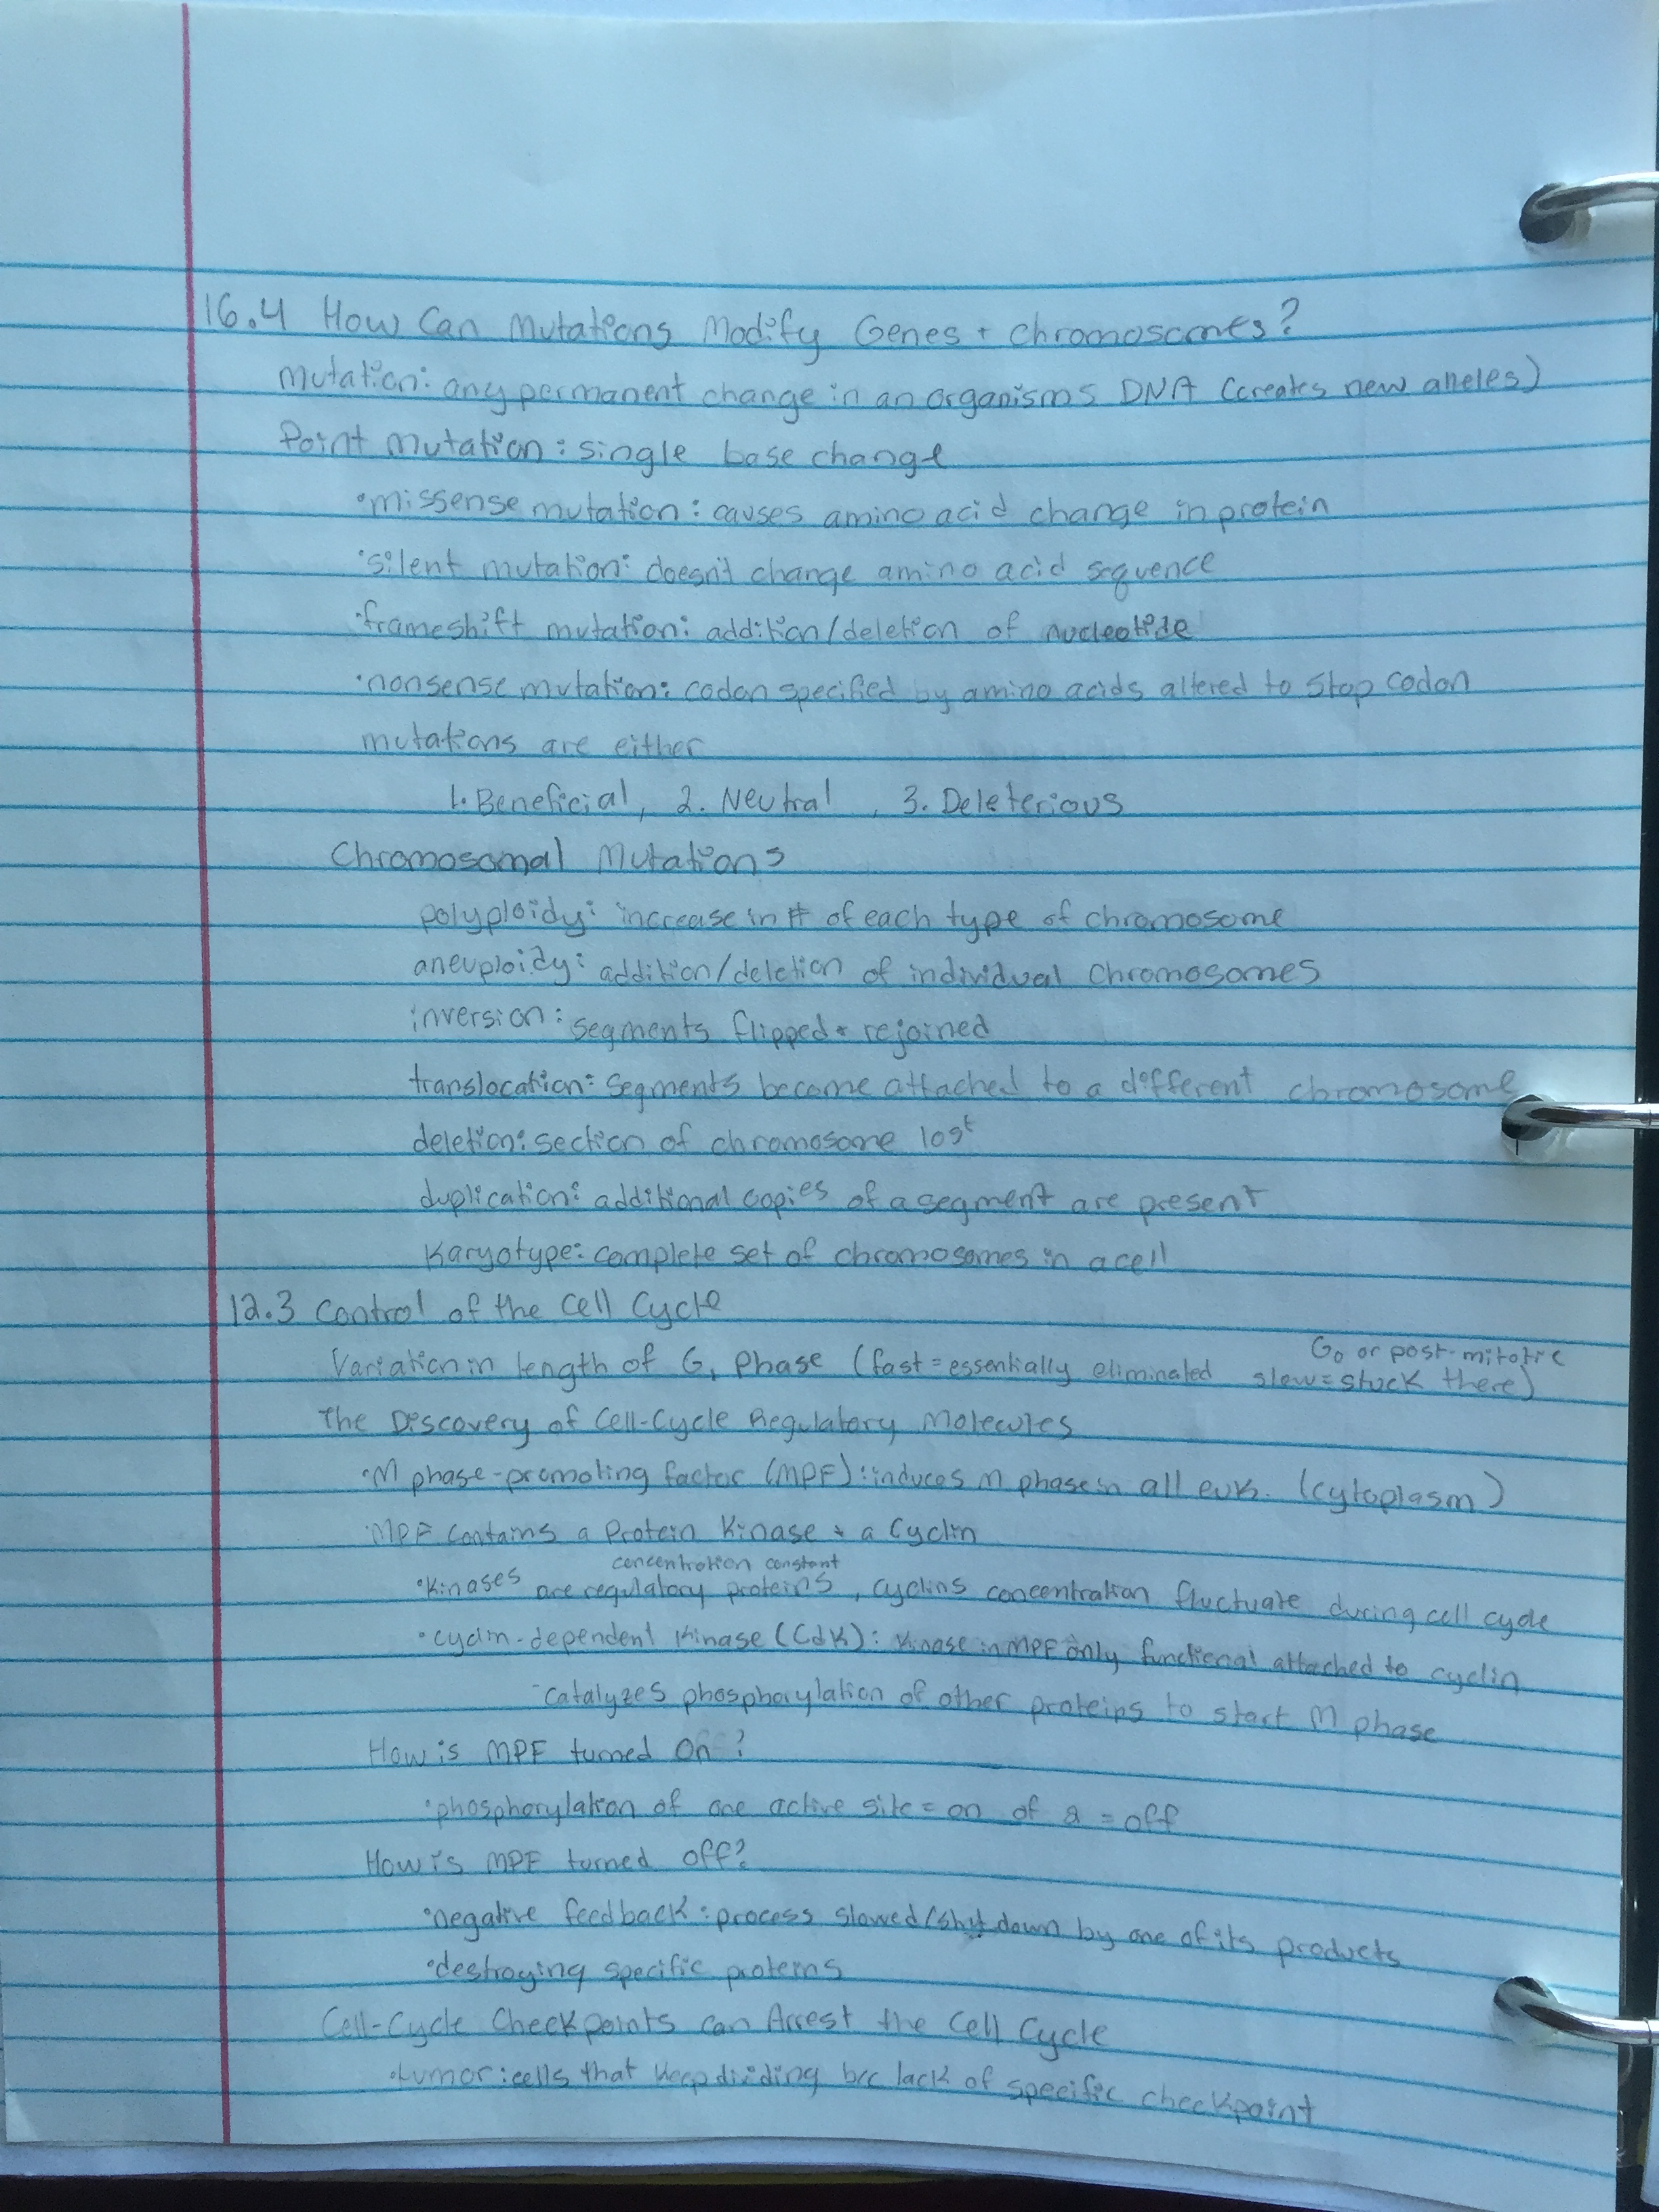 16.4 How Can Mutations Modify Genes + Chromosomes?
Mutation: any permanent change in an organisms DNA (creates new alleles)
Point Mutation: single base change
•missense mutation: causes amino acid change in protein
•silent mutation: doesn't change amino acid sequence
•frameshift mutation: addition/deletion of nucleotide
•nonsense mutation: codon specified by amino acids altered to stop codon
mutations are either
1. Beneficial, 2. Neutral, 3. Deleterious
Chromosomal Mutations
polyploidy: increase in # of each type of chromosome
aneuploidy: addition/deletion of individual chromosomes
inversion: segments flipped + rejoined
translocation: segments become attached to a different chromosome
deletion: section of chromosome lost
duplication: additional copies of a segment are present
Karyotype: complete set of chromosomes in a cell
12.3 Control of the Cell Cycle
G₀ or post-mitotic
Variation in length of G₁ Phase (fast = essentially eliminated slow = stuck there)
The Discovery of Cell-Cycle Regulatory Molecules
•M phase-promoting factor (MPF): induces M phase in all euk. (cytoplasm)
•MPF contains a Protein Kinase + a Cyclin
concentration constant
•Kinases are regulatory proteins, cyclins concentration fluctuate during cell cycle
•cyclin-dependent kinase (Cdk): kinase in MPF only functional attached to cyclin
-catalyzes phosphorylation of other proteins to start M phase
How is MPF turned On?
•phosphorylation of one active site = on of 2 = off
How is MPF turned off?
•negative feedback: process slowed/shut down by one of its products
•destroying specific proteins
Cell-Cycle Checkpoints can Arrest the Cell Cycle
•tumor: cells that keep dividing b/c lack of specific checkpoint